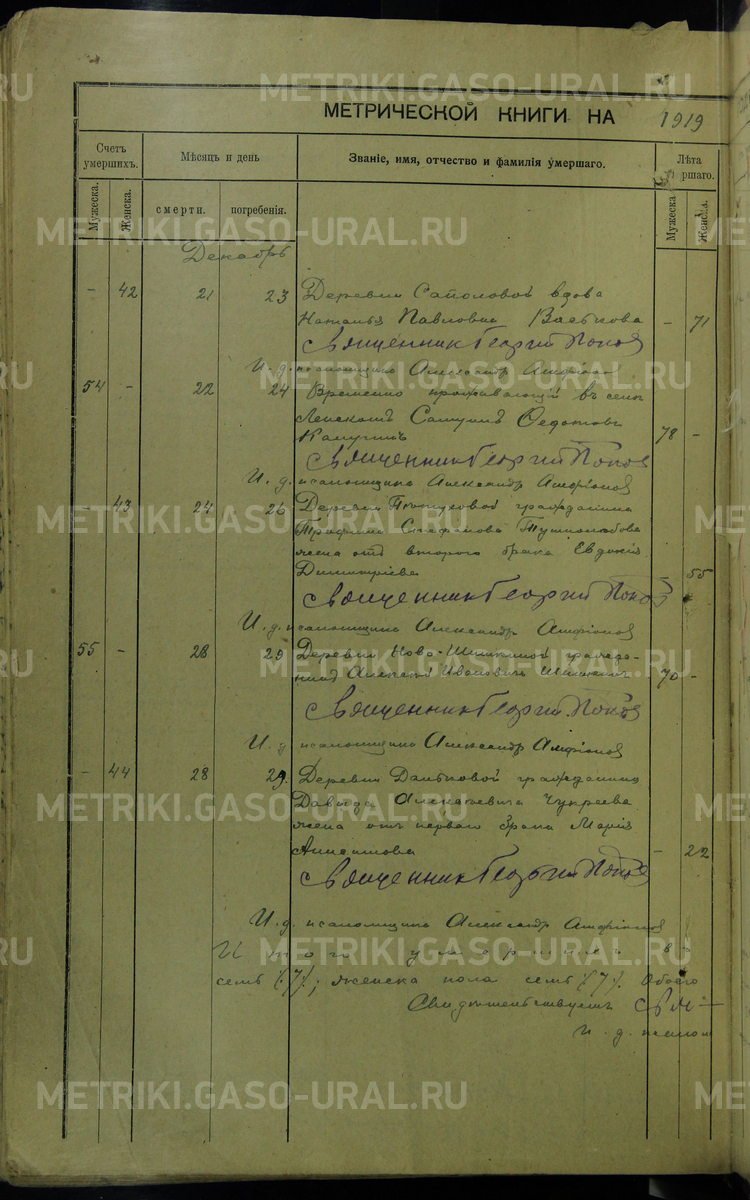 МЕТРИЧЕСКОЙ КНИГИ НА 1919
Счетъ умершихъ.
Мѣсяцъ и день
Званіе, имя, отчество и фамилія умершаго.
Лѣта
ршаго.
Мужеска.
Женска.
смерти.
погребенія.
Мужеска
Женска.
Декабрь
- 42 21 23 Деревни Сополовой вдова
Наталья Павловна Васькова - 71
Священник Георгий Попов
И. д. псаломщика Александр Амфіонов
54 - 22 24 Временно проживающій въ селѣ
Ленскомъ Самуилъ Федотовъ
78 -
Священник Георгий Попов
И. д. псаломщика Александр Амфіонов
- 43 24 26 Деревни гражданина
Трофима Стефанова
жена отъ второго брака Евдокія
Димитріева - 55
Священник Георгий Попов
И. д. псаломщика Александр Амфіонов
55 - 28 29 Деревни Ново-Шишкиной гражда-
нинъ Алексѣй Ивановичъ Шишкинъ 70 -
Священник Георгий Попов
И. д. псаломщика Александр Амфіонов
- 44 28 29. Деревни гражданина
Давида Алексѣевича Чукреева
жена отъ перваго брака Марія
Анисимова - 22
Священник Георгий Попов
И. д. псаломщика Александр Амфіонов
Итого умершихъ въ
семь (7); женска пола семь (7). Обоего
Свидѣтельствуемъ Свя-
и. д. псалом
METRIKI.GASO-URAL.RU